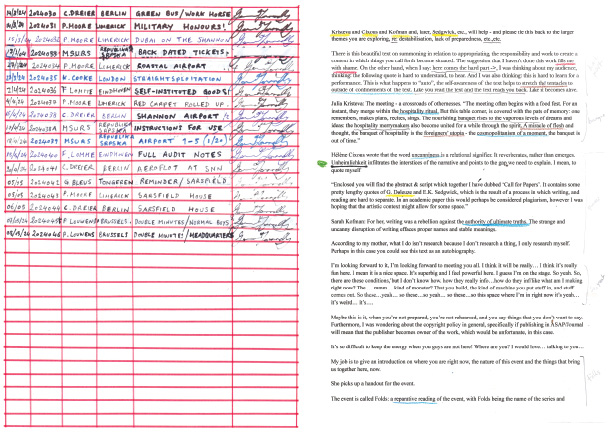 2024030 C.DREIER BERLIN GREEN BUS/WORK HORSE
2024031 P.MOORE LIMERICK MILITARY HONOURS!
P.MOORE LIMERICK DUBAI ON THE SHANNON
MSURS REPUBLIKA SRPSKA BACK DATED TICKETS
2024034 P.MOORE LIMERICK COASTAL AIRPORT
2024035 K. COOKE LONDON STRAIGHTSPLOITATION
2024036 EINDHOVEN SELF-INSTITUTED GOODS
2024037 P.MOORE LIMERICK RED CARPET ROLLED UP
2024038 C.DREIER BERLIN SHANNON AIRPORT
MSURS REPUBLIKA SRPSKA INSTRUCTIONS FOR USE
MSURS REPUBLIKA SRPSKA AIRPORT 1-5 (1/20)
2024040 F. LOHME EINDHOVEN FULL AUDIT NOTES
C.DREIER BERLIN AEROFLOT AT SNN
05/05 2024042 G BLEUS TONGEREN REMINDER/ SARSFIELD
05/05 P. MOORE LIMERICK SARSFIELD HOUSE
06/05 C.DREIER BERLIN SARSFIELD HOUSE
P.LOUWENS BRUSSELS DOUBLE MINUTES/NORMAL BOYS
P.LOUWENS BRUSSELS DOUBLE MINUTES/HEADQUARTERS
Kristeva and Cixous and Kofman and, later, Sedgwick, etc., will help - and please tie this back to the larger
themes you are exploring, re: destabilisation, lack of preparedness, etc.,etc.
There is this beautiful text on summoning in relation to appropriating, the responsibility and work to create a
context in which danger you call forth become shunned. The suggestion that I haven't done this work fills me
with shame. On the other hand, when I say 'here comes the hard part ->, I was thinking about my audience,
thinking the following quote is hard to understand, to hear. And I was also thinking: this is hard to learn for a
performance. This is what happens to "auto", the self-awareness of the text helps to stretch the tentacles to
outside of continements of the text. Like you read the text and the text reads you back. Like it becomes alive.
Julia Kristeva: The meeting - a crossroads of othernesses. "The meeting often begins with a food fest. For an
instant, they merge within the hospitality ritual. But this table corner, is covered with the pats of memory: one
remembers, makes plans, recites, sings. The nourishing banquet rises to the vaporous levels of dreams and
ideas: the hospitality merrymakers also become united for a while through the spirit. A miracle of flesh and
thought, the banquet of hospitality is the foreigners' utopia - the cosmopolitanism of a moment, the banquet is
out of time."
Hélène Cixous wrote that the word uncanniness is a relational signifier. It reverberates, rather than emerges.
Unheimlichkeit infiltrates the interstices of the narrative and points to the gap we need to explain. I mean, to
quote myself
"Enclosed you will find the abstract & script which together I have dubbed 'Call for Papers'. It contains some
pretty lengthy quotes of G. Deleuze and E.K. Sedgwick, which is the result of a process in which writing, and
reading are hard to separate. In an academic paper this would perhaps be considered plagiarism, however I was
hoping that the artistic context might allow for some space."
Sarah Kofman: For her, writing was a rebellion against the authority of ultimate truths. The strange and
uncanny disruption of writing effaces proper names and stable meanings.
According to my mother, what I do isn't research because I don't research a thing, I only research myself.
Perhaps in this case you could see this text as an autobiography.
I'm looking forward to it, I'm looking forward to meeting you all. I think it will be really... I think it's really
fun here. I mean it is a nice space. It's superbig and I feel powerful here. I guess I'm on the stage. So yeah. So,
there are these conditions, but I don't know how, how they really info...how do they infl ike what am I making
right now? The.... mmm... kind of monster? That you build, the kind of machine you put stuff in, and stuff
comes out. So these...yeah... so these...so yeah... so these...so this space where I'm in right now it's yeah...
it's weird... it's....
Maybe this is it, when you're not prepared, you're not rehearsed, and you say things that you don't want to say.
Furthermore, I was wondering about the copyright policy in general, specifically if publishing in ASAP/Journal
will mean that the publisher becomes owner of the work, which would be unfortunate, in this case.
It's so difficult to keep the energy when you guys are not here! Where are you? I would love... talking to you...
My job is to give an introduction on where you are right now, the nature of this event and the things that bring
us together here, now.
She picks up a handout for the event.
The event is called Folds: a reparative reading of the event, with Folds being the name of the series and